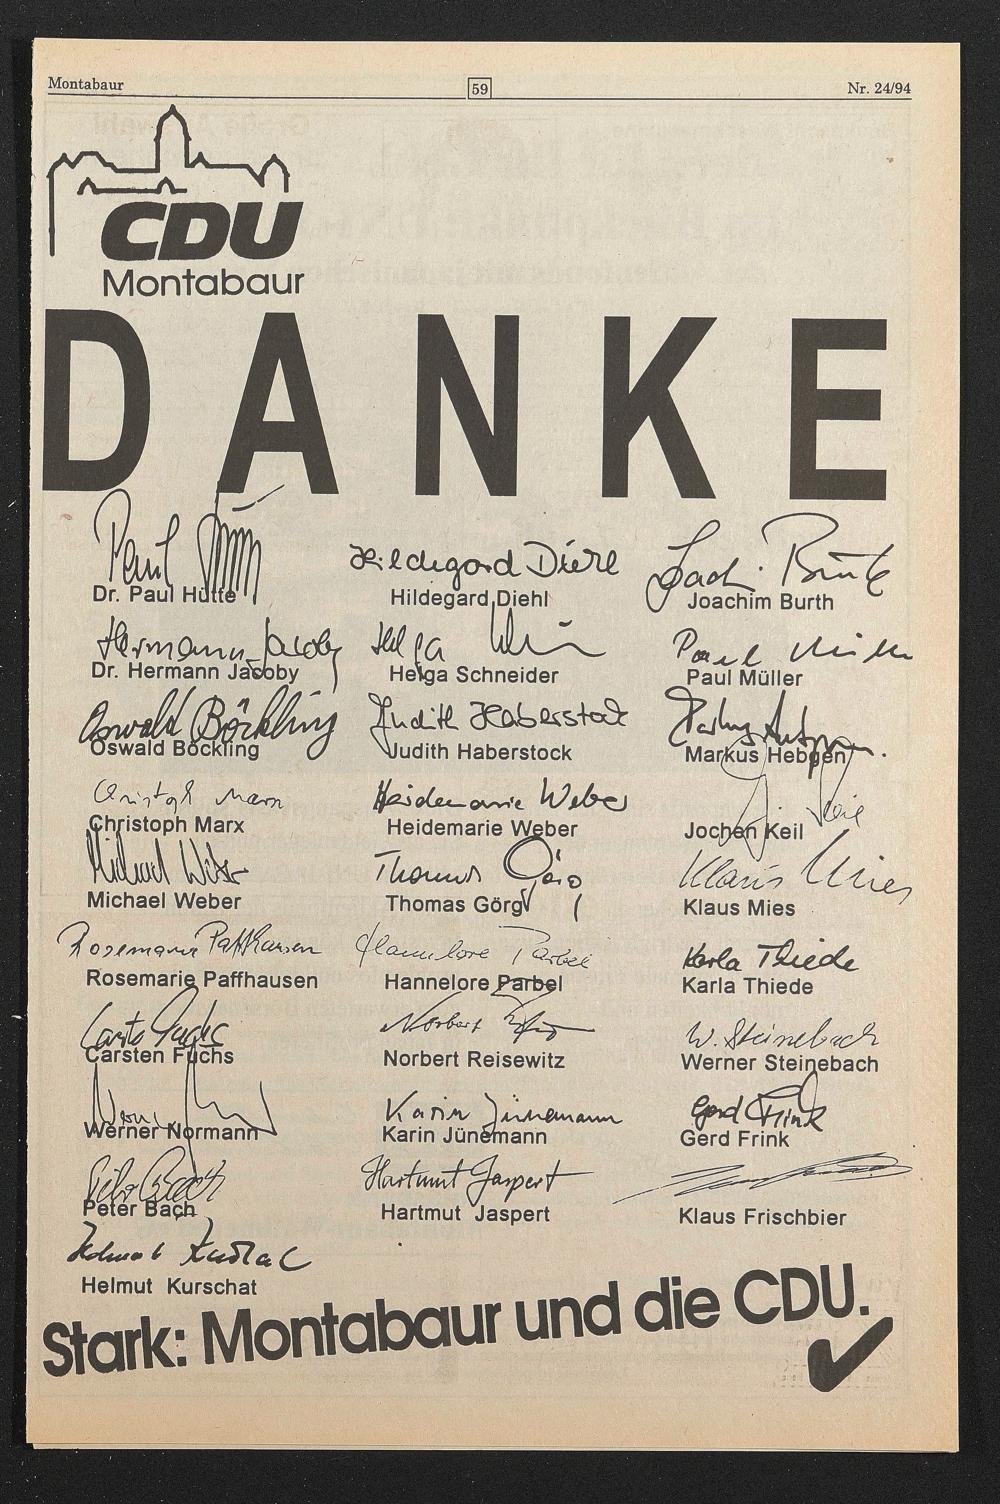 Montabaur 59 Nr. 24/94
CDU
Montabaur
DANKE
Paul Hütte Hildegard Diehl Joachim Burth
Dr. Paul Hütte Hildegard Diehl Joachim Burth
Hermann Jacoby Helga Paul Müller
Dr. Hermann Jacoby Helga Schneider Paul Müller
Oswald Böckling Judith Haberstock Markus
Oswald Böckling Judith Haberstock Markus Hebgen
Christoph Marx Heidemarie Weber Keil
Christoph Marx Heidemarie Weber Jochen Keil
Michael Weber Thomas Görg Klaus Mies
Michael Weber Thomas Görg Klaus Mies
Rosemarie Paffhausen Hannelore Parbel Karla Thiede
Rosemarie Paffhausen Hannelore Parbel Karla Thiede
Carsten Fuchs Norbert W. Steinebach
Carsten Fuchs Norbert Reisewitz Werner Steinebach
Karin Jünemann Gerd Frink
Werner Normann Karin Jünemann Gerd Frink
Peter Bach Hartmut Jaspert
Peter Bach Hartmut Jaspert Klaus Frischbier
Helmut
Helmut Kurschat
Stark: Montabaur und die CDU.